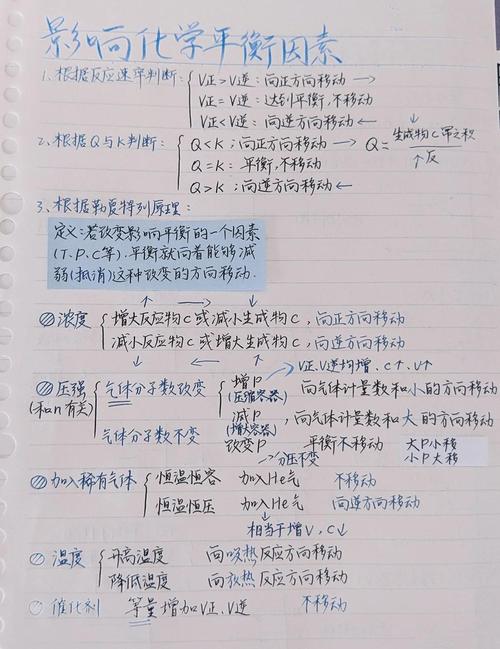 影响化学平衡因素
1、根据反应速率判断: { V正>V逆:向正方向移动 →
V正=V逆:达到平衡,不移动
V正<V逆:向逆方向移动 ←
2、根据Q与K判断: { Q<K;向正方向移动 → Q=生成物C幂之积/↑反
Q=K:平衡,不移动
Q>K;向逆方向移动 ←
3、根据勒夏特列原理:
定义:若改变影响平衡的一个因素
(T.P.C等).平衡就向着能够减
弱(抵消)这种改变的方向移动.
浓度 { 增大反应物C或减小生成物C,向正方向移动
减小反应物C或增大生成物C,向逆方向移动
V正.V逆均增.C↑.V↑
压强 { 气体分子数改变 { 增P 向气体计量数和小的方向移动
(和n有关) (压缩容器)
减P,向气体计量数和大的方向移动
(增大容器)
气体分子数不变 改变P 平衡不移动 大P小移
→分压不变 小P大移
加入稀有气体 { 恒温恒容 加入He气 不移动
恒温恒压 加入He气 向逆方向移动
相当于增V,C↓
温度 { 升高温度 向吸热反应方向移动
降低温度 向放热反应方向移动
催化剂 等量增加V正.V逆 不移动